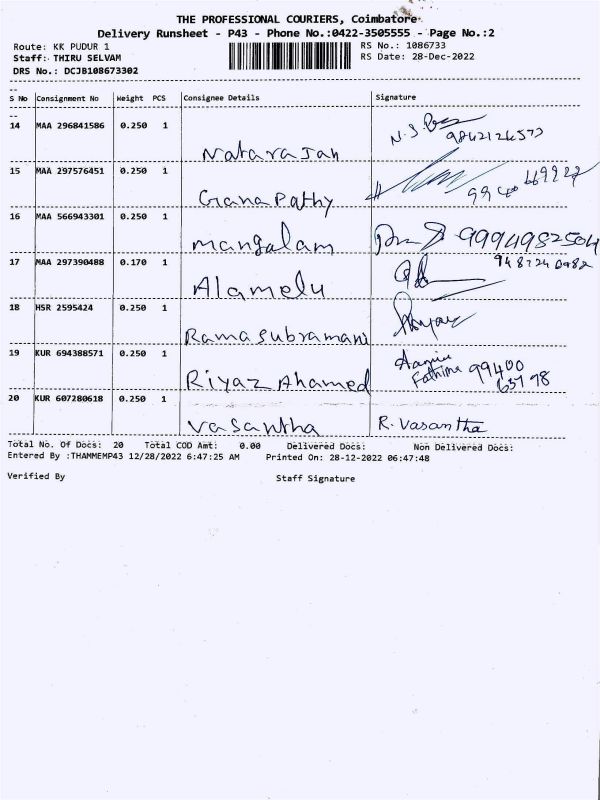 THE PROFESSIONAL COURIERS, Coimbatore
Delivery Runsheet - P43 - Phone No.:0422-3505555 - Page No.:2
Route: KK PUDUR 1 RS No.: 1086733
Staff: THIRU SELVAM RS Date: 28-Dec-2022
DRS No.: DCJB108673302
S No Consignment No Weight PCS Consignee Details Signature
14 MAA 296841586 0.250 1 Natarajan
15 MAA 297576451 0.250 1 GanaPathy
16 MAA 566943301 0.250 1 mangalam 9994982504
17 MAA 297390488 0.170 1 Alamelu
18 HSR 2595424 0.250 1 Rama subramani
19 KUR 694388571 0.250 1 Riyaz Ahamed Fathima 99400
63798
20 KUR 607280618 0.250 1 vasantha R. Vasantha
Total No. Of Docs: 20 Total COD Amt: 0.00 Delivered Docs: Non Delivered Docs:
Entered By :THAMMEMP43 12/28/2022 6:47:25 AM Printed On: 28-12-2022 06:47:48
Verified By Staff Signature